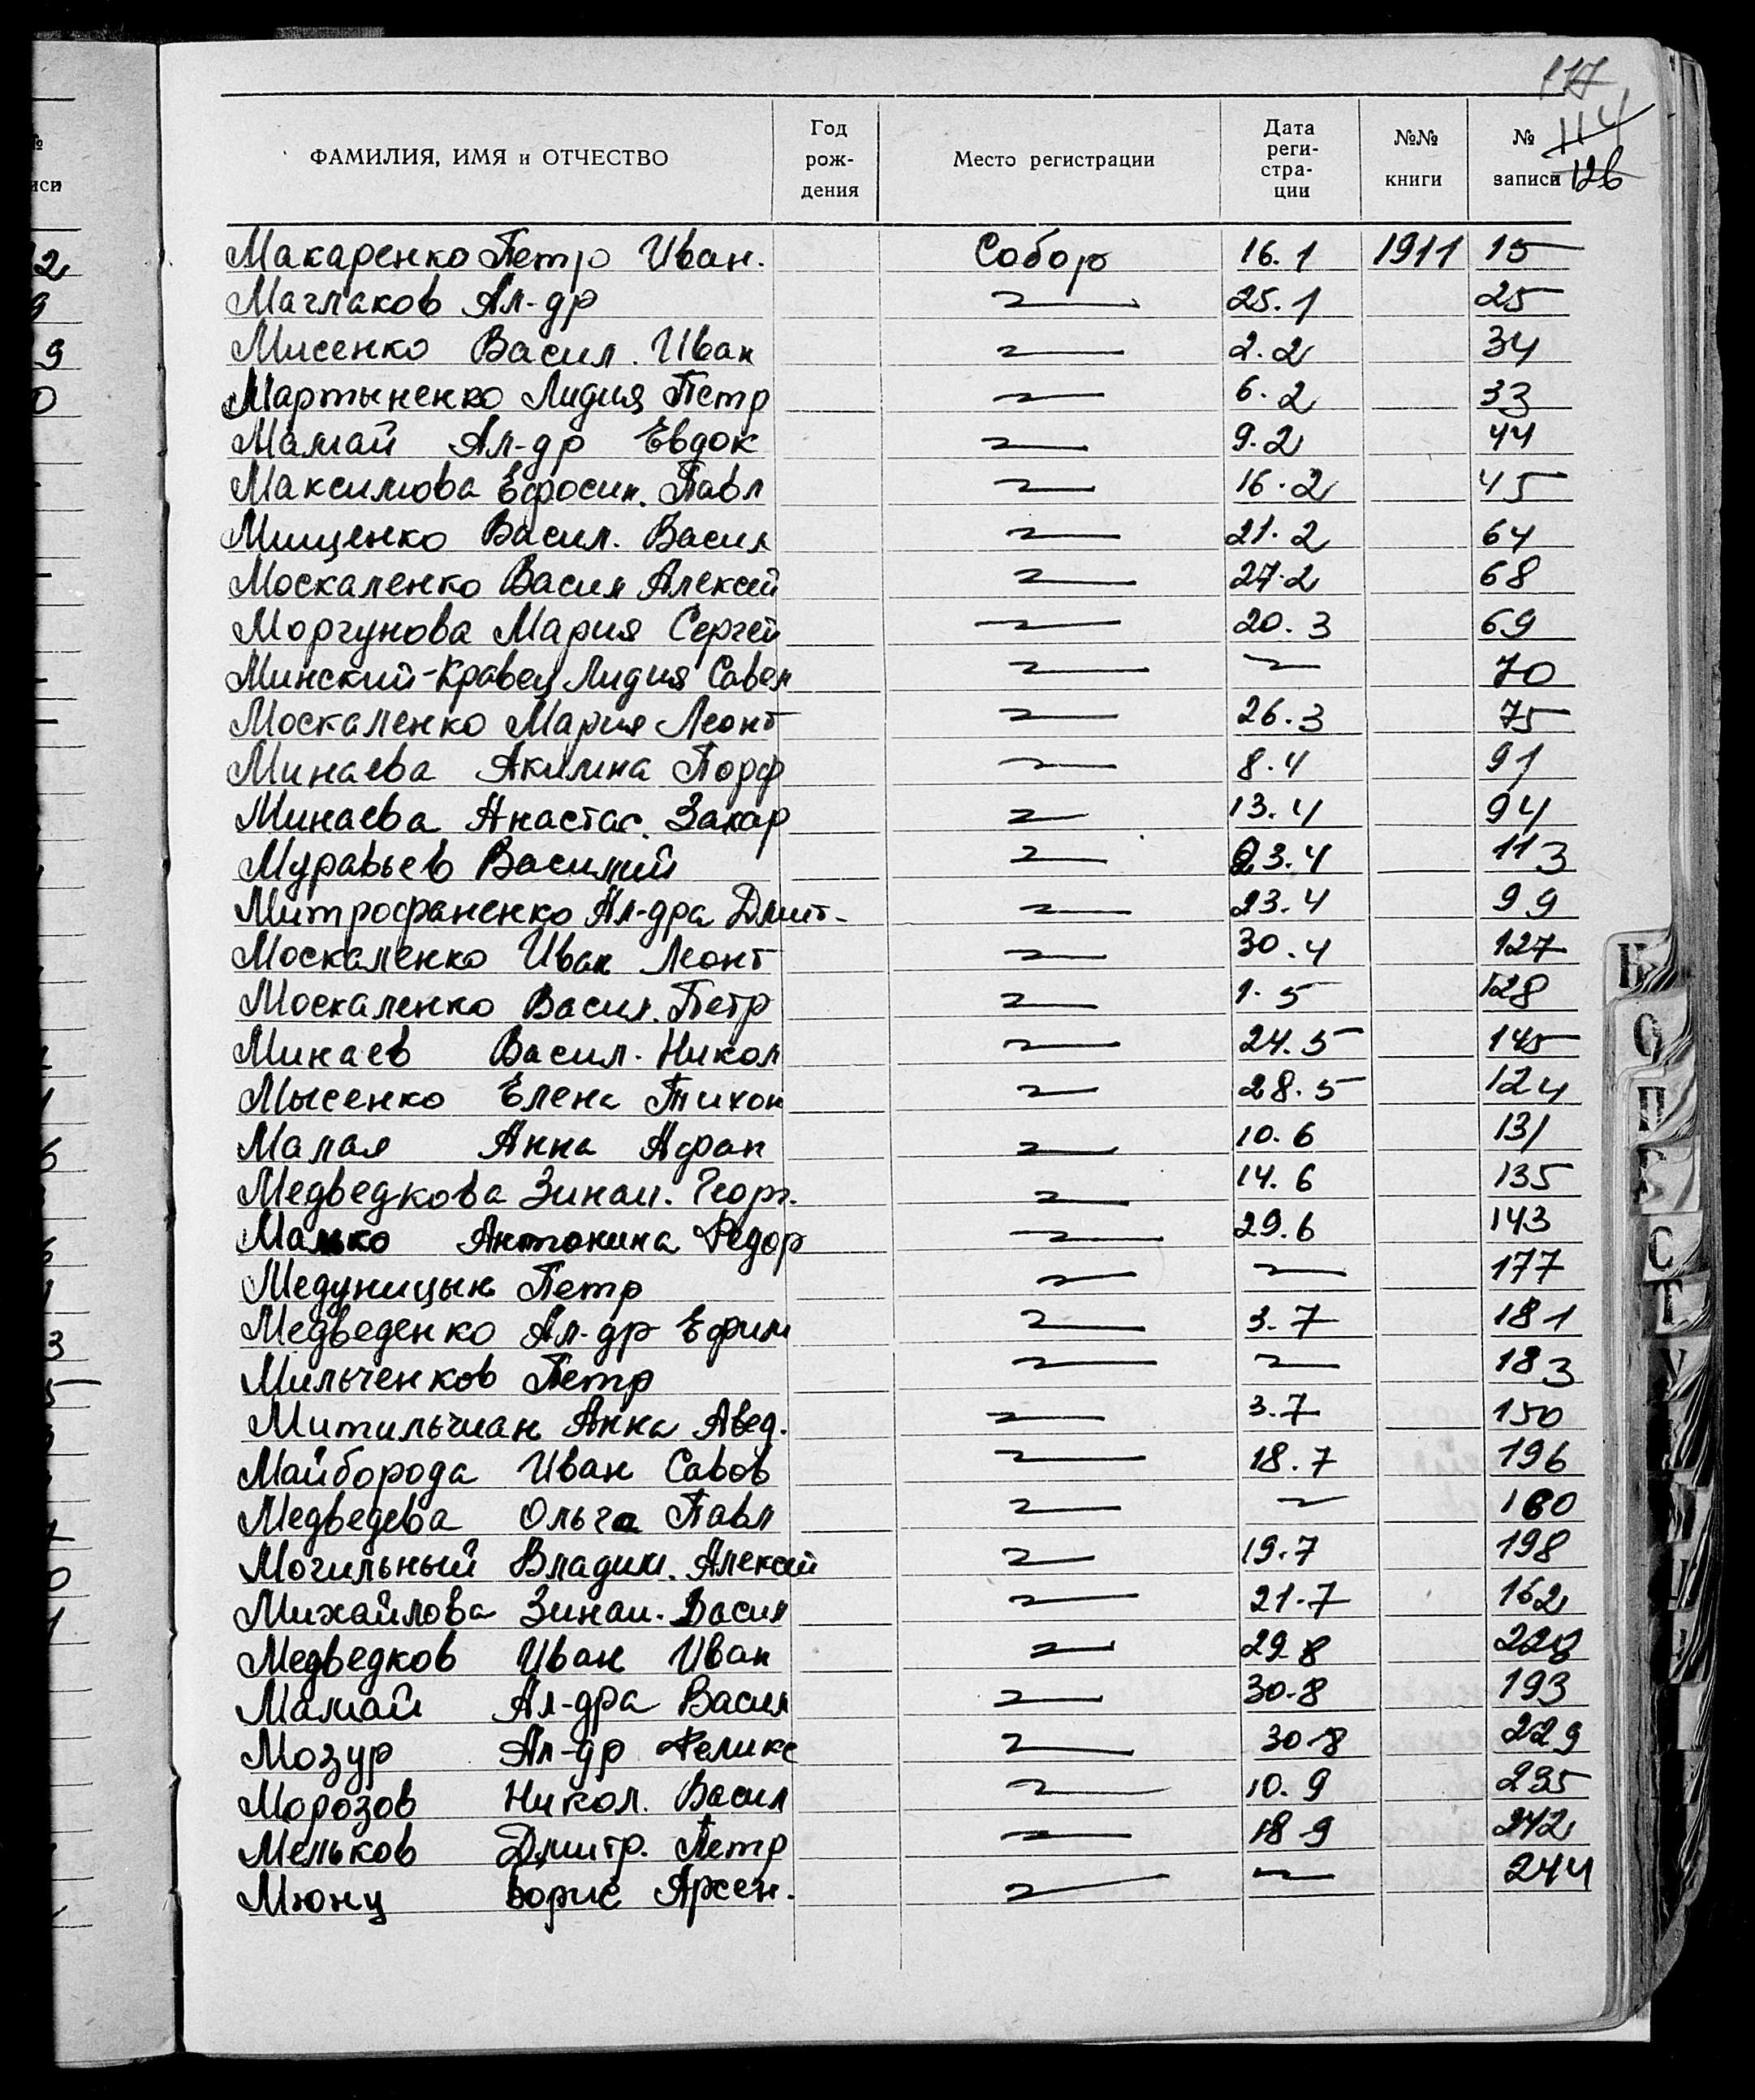 114
126
ФАМИЛИЯ, ИМЯ и ОТЧЕСТВО Год рож- дения Место регистрации Дата реги- стра- ции №№ книги № записи
Макаренко Петр Иван. Собор 16.1 1911 15
Маглаков Ал-др 25.1 25
Мисенко Васил. Иван 2.2 34
Мартыненко Лидия Петр 6.2 33
Мамай Ал-др Евдок 9.2 44
Максимова Ефросин. Павл 16.2 45
Мищенко Васил. Васил 21.2 64
Москаленко Васил Алексей 27.2 68
Моргунова Мария Сергей 20.3 69
Минский-Кравец Лидия Савел 70
Москаленко Мария Леонт 26.3 75
Минаева Акилина Порф 8.4 91
Минаева Анастас. Захар 13.4 94
Муравьев Василий 23.4 113
Митрофаненко Ал-дра Дмит- 23.4 99
Москаленко Иван Леонт 30.4 127
Москаленко Васил. Петр 1.5 128
Минаев Васил. Никол 24.5 145
Мысенко Елена Тихон 28.5 124
Малая Анна Афан 10.6 131
Медведкова Зинаи. Георг. 14.6 135
Малько Антонина Федор 29.6 143
Медуницын Петр 177
Медведенко Ал-др Ефим 3.7 181
Мильченков Петр 183
Митильчиан Анна Авед. 3.7 150
Майборода Иван Савов 18.7 196
Медведева Ольга Павл 160
Могильный Владим. Алексей 19.7 198
Михайлова Зинаи. Васил 21.7 162
Медведков Иван Иван 29 8 228
Мамай Ал-дра Васил 30.8 193
Мозур Ал-др Феликс 30.8 229
Морозов Никол. Васил 10.9 235
Мельков Дмитр. Петр 18 9 242
Мюнц Борис Арсен. 244
О
П
Р
С
Т
У